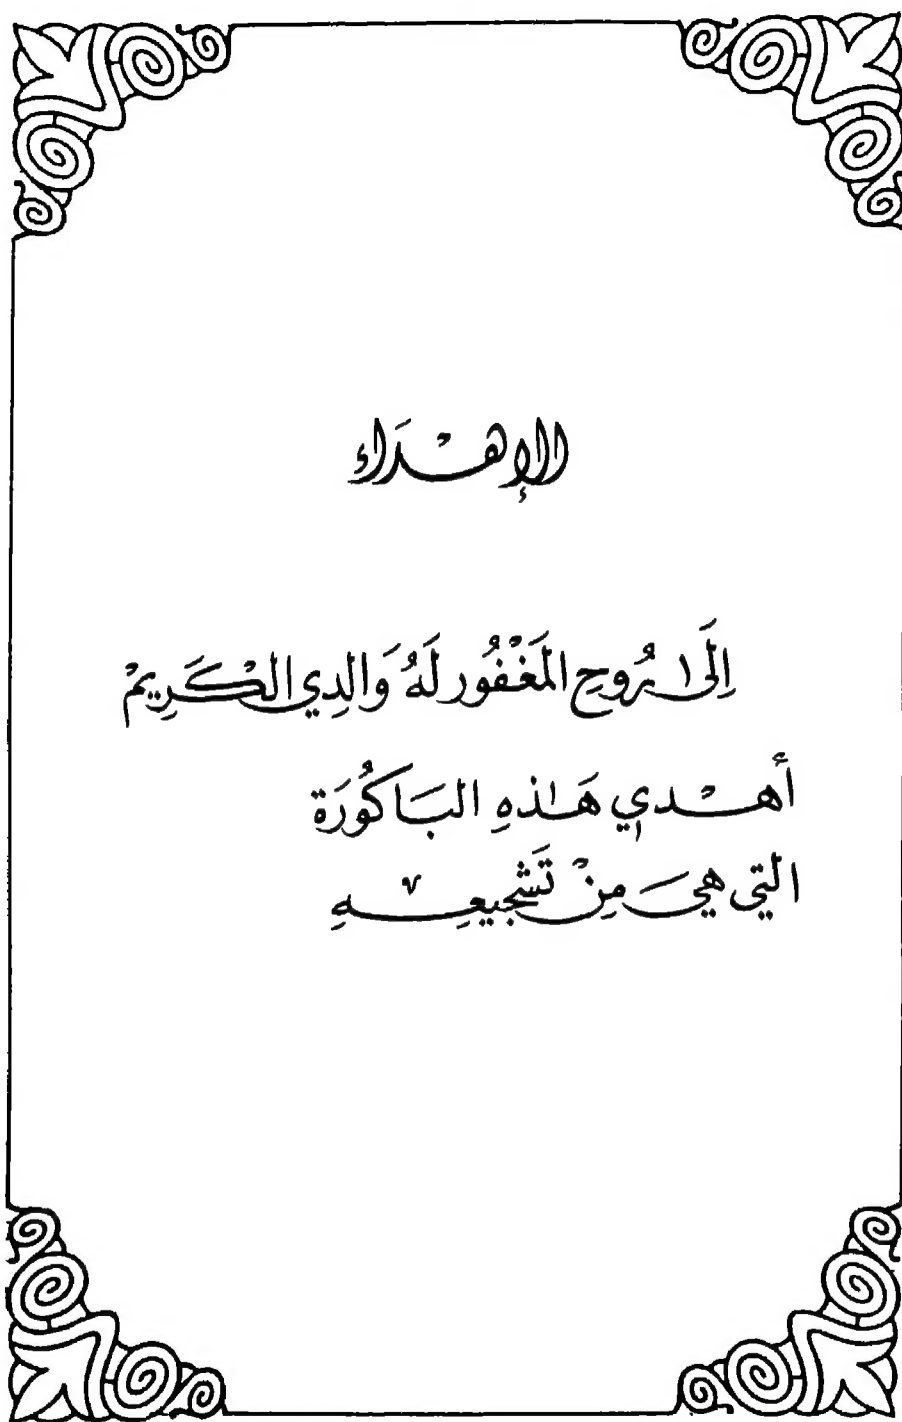 الإهْدَاء
إِلَى رُوحِ المَغْفُور لَهُ وَالِدِي الْكَرِيمْ
أهْدِي هَذِهِ البَاكُورَة
التِي هِيَ مِنْ تَشْجِيعِهِ